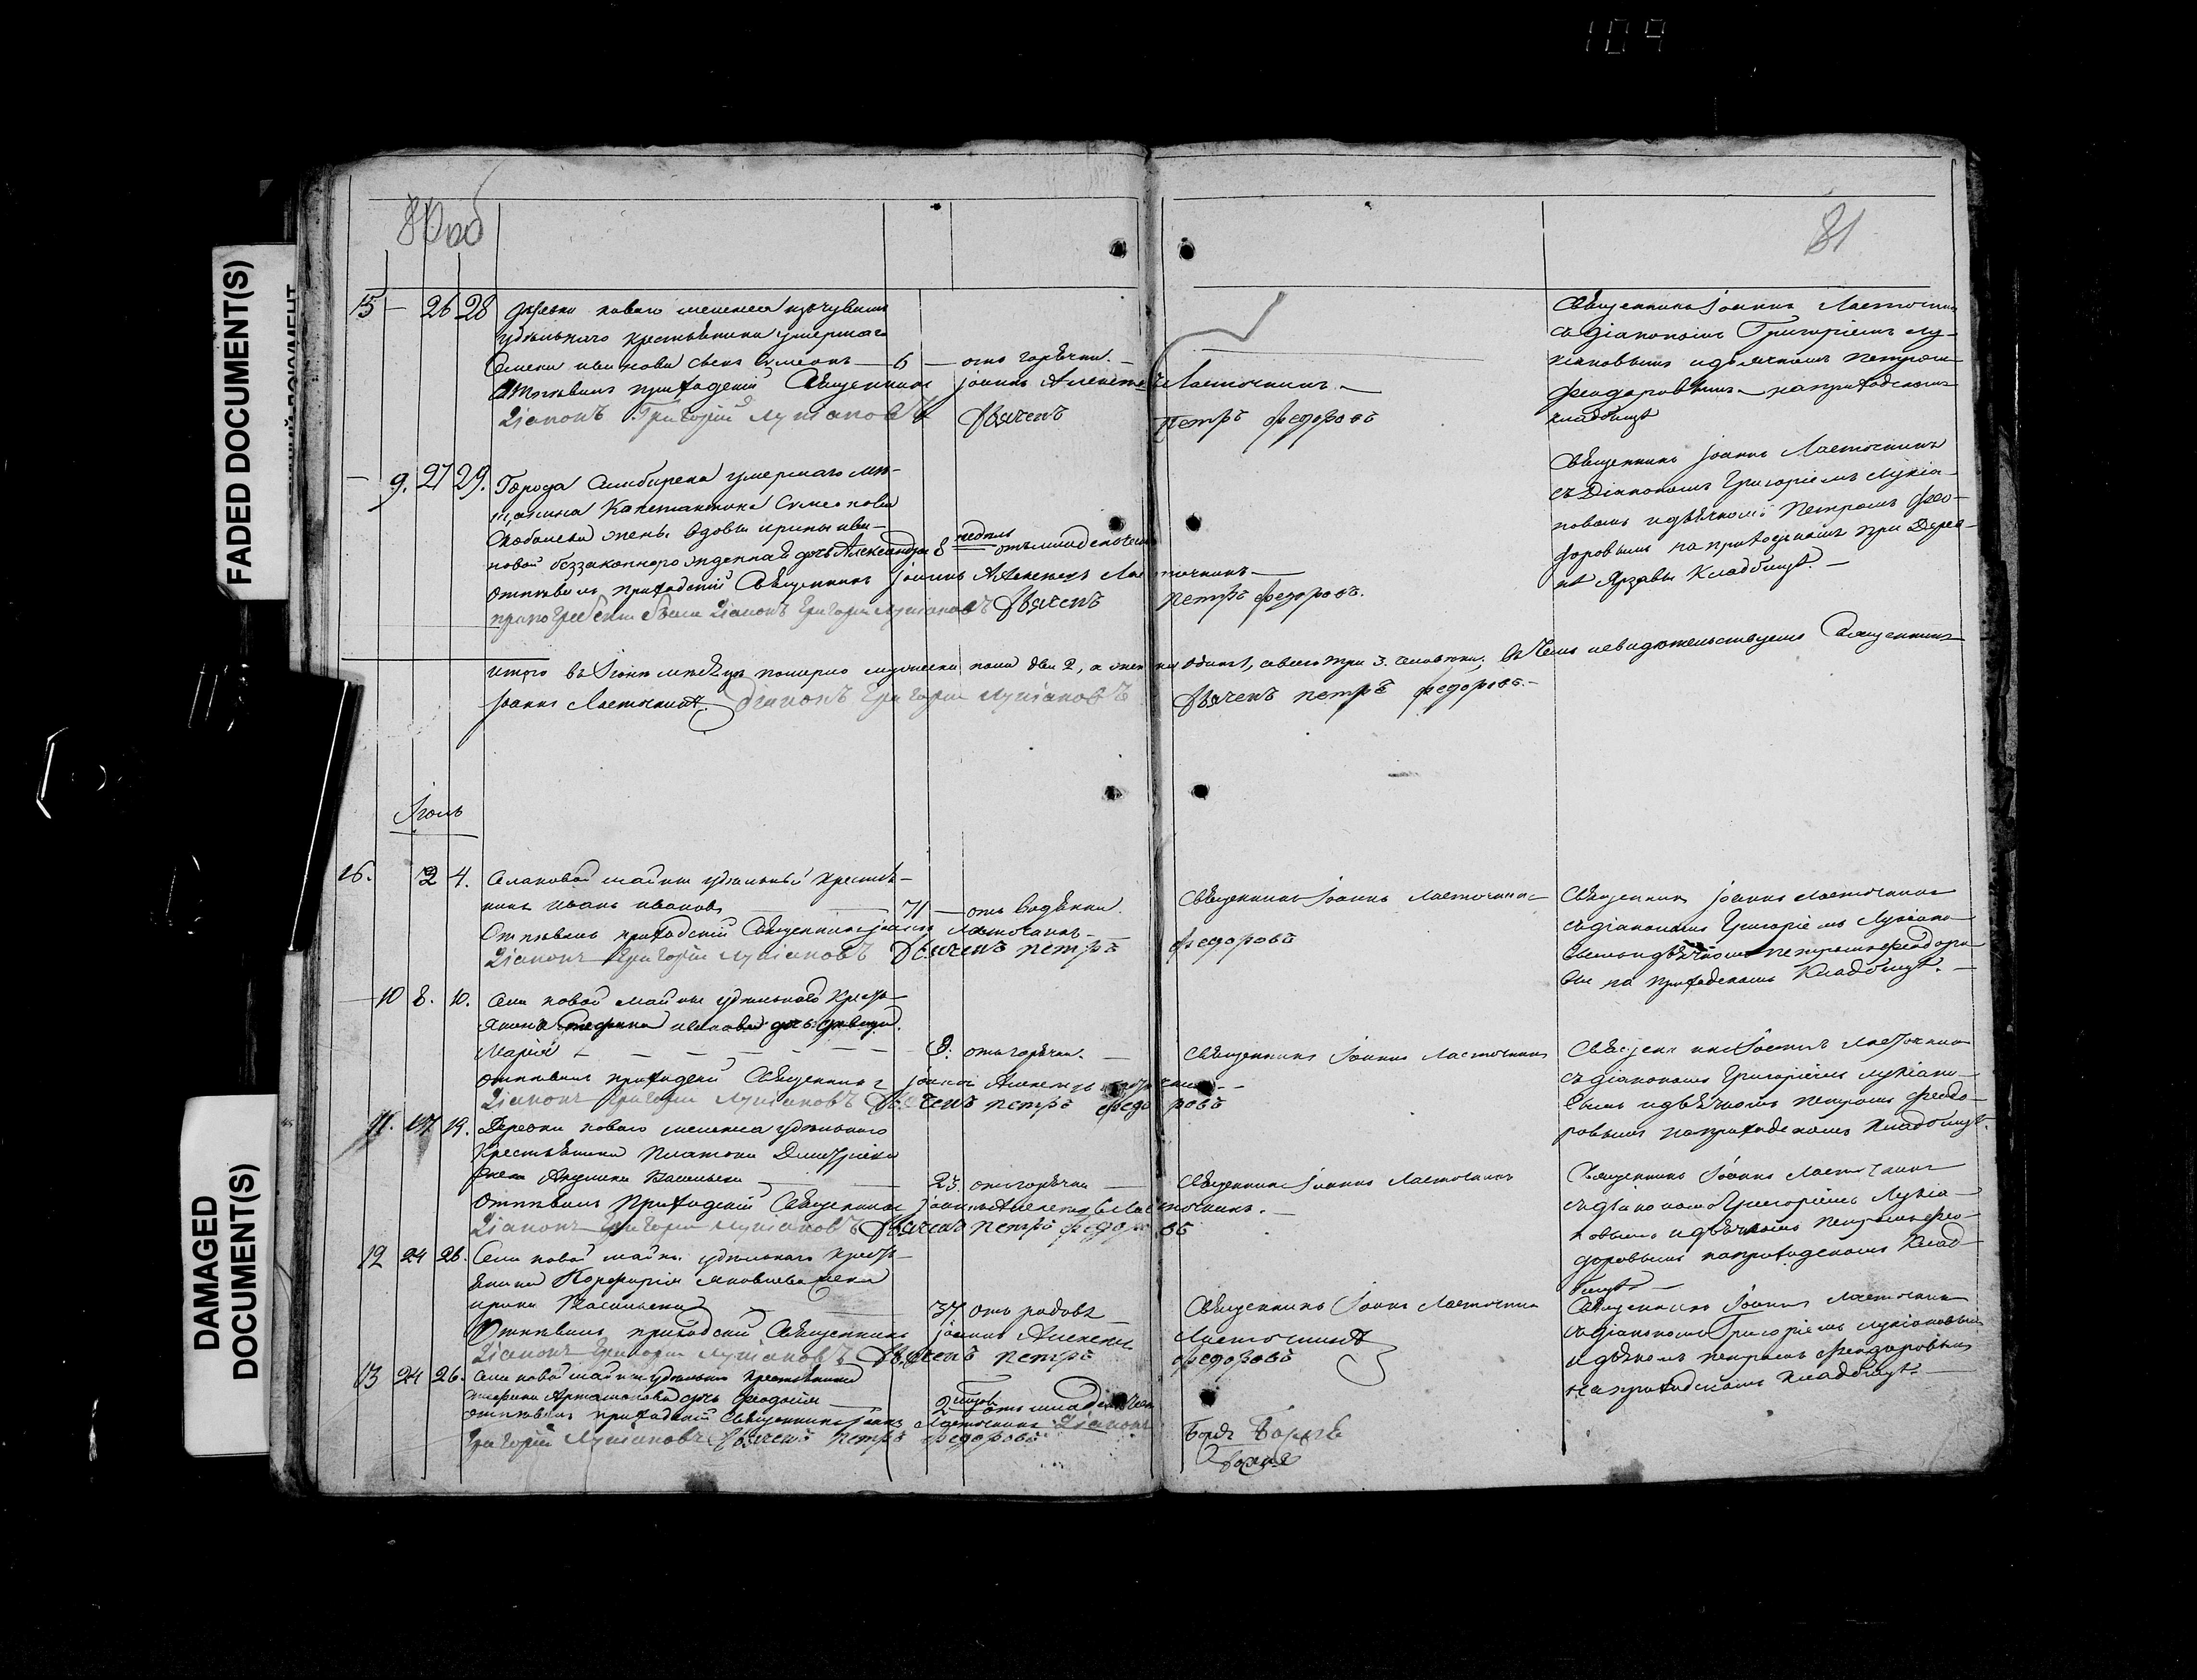 109
80 об
81
15 — 26 28 Деревни новаго изъ чувашъ
удѣльнаго крестьянина умершаго
Симеонъ — 6 — отъ горячки. —
Отпѣвалъ приходскій Священникъ Іоаннъ Алексѣевъ Ласточкинъ. —
Діаконъ Григорій Лукіановъ Дьячекъ Петръ Федоровъ
Священникъ Іоаннъ Ласточкинъ
съ діакономъ Григоріемъ Лу-
кіановымъ и дьячкомъ Петромъ
Феодоровымъ на приходскомъ
кладбищѣ
— 9. 27 29. Города Симбирска умершаго мѣ-
щанина Константина Симеонова
жены вдовы Ирины Ива-
новой беззаконнорожденная дочь Александра 8 недѣль отъ младенческой
Отпѣвалъ приходскій Священникъ Іоаннъ Алексѣевъ Ласточкинъ —
при погребеніи были Діаконъ Григорій Лукіановъ Дьячекъ Петръ Федоровъ.
Священникъ Іоаннъ Ласточкинъ
съ Діакономъ Григоріемъ Лукіа-
новымъ и дьячкомъ Петромъ Фео-
доровымъ на приходскомъ при Дерев-
нѣ Кладбищѣ. —
Итого въ Іюнѣ мѣсяцѣ померло мужеска пола два 2, а женска одинъ 1, а всего три 3. человѣка. Въ чемъ и свидѣтельствуемъ Священникъ
Іоаннъ Ласточкинъ. Діаконъ Григорій Лукіановъ Дьячекъ Петръ Федоровъ. —
Іюль
16. 2 4. Села новой майны удѣльный крестья-
нинъ Иванъ Ивановъ — 71 — отъ водянки.
Отпѣвалъ приходскій Священникъ Іоаннъ Ласточкинъ —
Діаконъ Григорій Лукіановъ Дьячекъ Петръ Федоровъ
Священникъ Іоаннъ Ласточкинъ
Священникъ Іоаннъ Ласточкинъ
съ діакономъ Григоріемъ Лукіано-
вымъ и дьячкомъ Петромъ Феодоро-
вымъ на приходскомъ Кладбищѣ. —
— 10 8. 10. Села новой майны удѣльнаго крестья-
янина Стефана Иванова дочь дѣвица
Марія — 8. отъ горячки. —
отпѣвалъ приходскій Священникъ Іоаннъ Алексѣевъ Ласточкинъ —
Діаконъ Григорій Лукіановъ Дьячекъ Петръ Федоровъ
Священникъ Іоаннъ Ласточкинъ
Священникъ Іоаннъ Ласточкинъ
съ діакономъ Григоріемъ Лукіано-
вымъ и дьячкомъ Петромъ Феодо-
ровымъ на приходскомъ Кладбищѣ.
11. 17 19. Деревни новаго удѣльнаго
Крестьянина Платона Димитріева
жена Акулина Васильева — 23. отъ горячки —
Отпѣвалъ Приходскій Священникъ Іоаннъ Алексѣевъ Ласточкинъ. —
Діаконъ Григорій Лукіановъ Дьячекъ Петръ Федоровъ
Священникъ Іоаннъ Ласточкинъ
Священникъ Іоаннъ Ласточкинъ
съ діакономъ Григоріемъ Лукіа-
новымъ и дьячкомъ Петромъ Фео-
доровымъ на приходскомъ Клад-
бищѣ —
12 24 26. Села новой майны удѣльнаго кресть-
янина Порфирія Яковлева жена
Ирина Васильева — 37 отъ родовъ
Отпѣвалъ приходскій Священникъ Іоаннъ Алексѣевъ Ласточкинъ
Діаконъ Григорій Лукіановъ Дьячекъ Петръ Федоровъ
Священникъ Іоаннъ Ласточкинъ
Священникъ Іоаннъ Ласточкинъ
съ діакономъ Григоріемъ Лукіановымъ
и дьячкомъ Петромъ Феодоровымъ
на приходскомъ Кладбищѣ. —
13 24 26. Села новой майны удѣльнаго крестьянина
Артамонова дочь — 2 отъ младенческой
отпѣвалъ приходскій Священникъ Іоаннъ Ласточкинъ Діаконъ
Григорій Лукіановъ Дьячекъ Петръ Федоровъ
FADED DOCUMENT(S)
DAMAGED DOCUMENT(S)